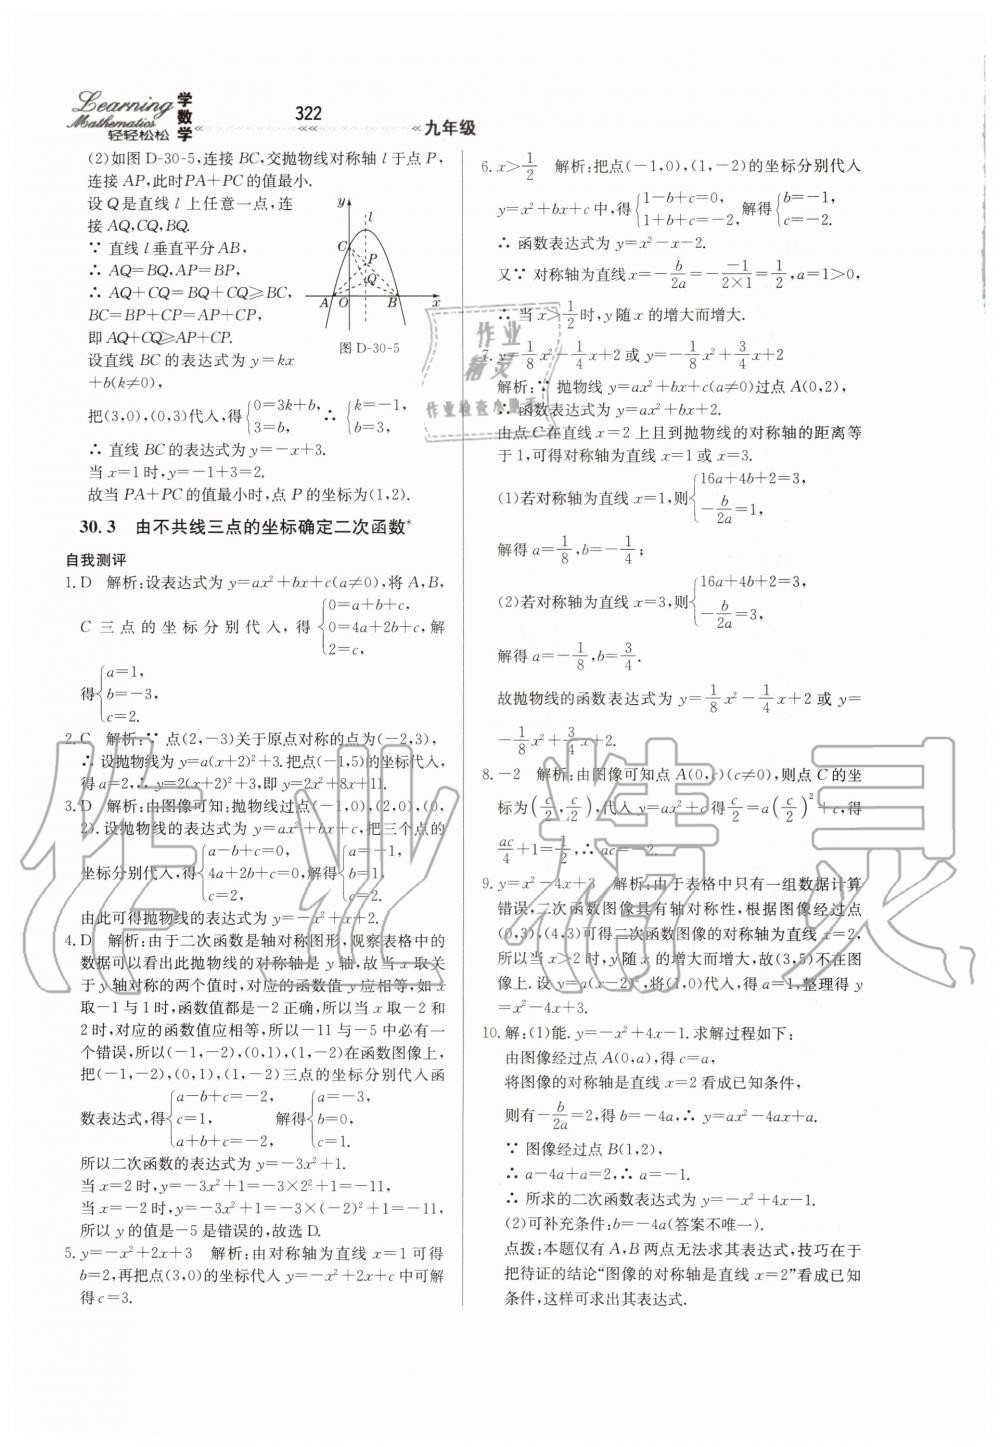 Learning
Mathematics
轻轻松松
学数学
322
九年级
(2)如图 D-30-5,连接 BC,交抛物线对称轴 l 于点 P,
连接 AP,此时PA+PC 的值最小.
设 Q 是直线 l 上任意一点,连
接 AQ,CQ,BQ.
∵ 直线 l 垂直平分 AB,
∴ AQ=BQ,AP=BP,
∴ AQ+CQ=BQ+CQ≥BC,
BC=BP+CP=AP+CP,
即 AQ+CQ≥AP+CP.
设直线 BC 的表达式为 y=kx
+b(k≠0),
y
l
C
P
Q
A
O
B
x
图 D-30-5
把(3,0),(0,3)代入,得{0=3k+b, 3=b, ∴ {k=-1, b=3,
∴ 直线 BC 的表达式为 y=-x+3.
当 x=1 时,y=-1+3=2.
故当 PA+PC 的值最小时,点 P 的坐标为(1,2).
30.3 由不共线三点的坐标确定二次函数*
自我测评
1. D 解析:设表达式为 y=ax²+bx+c(a≠0),将 A,B,
C 三点的坐标分别代入,得{0=a+b+c, 0=4a+2b+c, 2=c, 解
得{a=1, b=-3, c=2.
2. C 解析:∵ 点(2,-3)关于原点对称的点为(-2,3),
∴ 设抛物线为 y=a(x+2)²+3.把点(-1,5)的坐标代入,
得 a=2,∴ y=2(x+2)²+3,即 y=2x²+8x+11.
3. D 解析:由图像可知:抛物线过点(-1,0),(2,0),(0,
2).设抛物线的表达式为 y=ax²+bx+c,把三个点的
坐标分别代入,得{a-b+c=0, 4a+2b+c=0, c=2, 解得{a=-1, b=1, c=2.
由此可得抛物线的表达式为 y=-x²+x+2.
4. D 解析:由于二次函数是轴对称图形,观察表格中的
数据可以看出此抛物线的对称轴是 y 轴,故当 x 取关
于 y 轴对称的两个值时,对应的函数值 y 应相等,如 x
取-1 与 1 时,函数值都是-2 正确,所以当 x 取-2 和
2 时,对应的函数值应相等,所以-11 与-5 中必有一
个错误,所以(-1,-2),(0,1),(1,-2)在函数图像上,
把(-1,-2),(0,1),(1,-2)三点的坐标分别代入函
数表达式,得{a-b+c=-2, c=1, a+b+c=-2, 解得{a=-3, b=0, c=1.
所以二次函数的表达式为 y=-3x²+1.
当 x=2 时,y=-3x²+1=-3×2²+1=-11,
当 x=-2 时,y=-3x²+1=-3×(-2)²+1=-11,
所以 y 的值是-5 是错误的,故选 D.
5. y=-x²+2x+3 解析:由对称轴为直线 x=1 可得
b=2,再把点(3,0)的坐标代入 y=-x²+2x+c 中可解
得 c=3.
6. x>1/2 解析:把点(-1,0),(1,-2)的坐标分别代入
y=x²+bx+c 中,得{1-b+c=0, 1+b+c=-2, 解得{b=-1, c=-2.
∴ 函数表达式为 y=x²-x-2.
又∵ 对称轴为直线 x=-b/2a=-(-1)/(2×1)=1/2,a=1>0,
∴ 当 x>1/2时,y 随 x 的增大而增大.
7. y=1/8x²-1/4x+2 或 y=-1/8x²+3/4x+2
解析:∵ 抛物线 y=ax²+bx+c(a≠0)过点 A(0,2),
∴ 函数表达式为 y=ax²+bx+2.
由点 C 在直线 x=2 上且到抛物线的对称轴的距离等
于 1,可得对称轴为直线 x=1 或 x=3.
(1)若对称轴为直线 x=1,则{16a+4b+2=3, -b/2a=1,
解得 a=1/8,b=-1/4;
(2)若对称轴为直线 x=3,则{16a+4b+2=3, -b/2a=3,
解得 a=-1/8,b=3/4.
故抛物线的函数表达式为 y=1/8x²-1/4x+2 或 y=
-1/8x²+3/4x+2.
8. -2 解析:由图像可知点 A(0,c)(c≠0),则点 C 的坐
标为(c/2,c/2),代入 y=ax²+c 得c/2=a(c/2)²+c,得
ac/4+1=1/2,∴ ac=-2.
9. y=x²-4x+3 解析:由于表格中只有一组数据计算
错误,二次函数图像具有轴对称性,根据图像经过点
(0,3),(4,3)可得二次函数图像的对称轴为直线 x=2,
所以当 x>2 时,y 随 x 的增大而增大,故(3,5)不在图
像上.设 y=a(x-2)²,将(1,0)代入,得 a=1,整理得 y
=x²-4x+3.
10. 解:(1)能. y=-x²+4x-1.求解过程如下:
由图像经过点 A(0,a),得 c=a,
将图像的对称轴是直线 x=2 看成已知条件,
则有-b/2a=2,得 b=-4a,∴ y=ax²-4ax+a.
∵ 图像经过点 B(1,2),
∴ a-4a+a=2,∴ a=-1.
∴ 所求的二次函数表达式为 y=-x²+4x-1.
(2)可补充条件:b=-4a(答案不唯一).
点拨:本题仅有 A,B 两点无法求其表达式,技巧在于
把待证的结论“图像的对称轴是直线 x=2”看成已知
条件,这样可求出其表达式.
作业
精灵
作业检查小助手
作业精灵